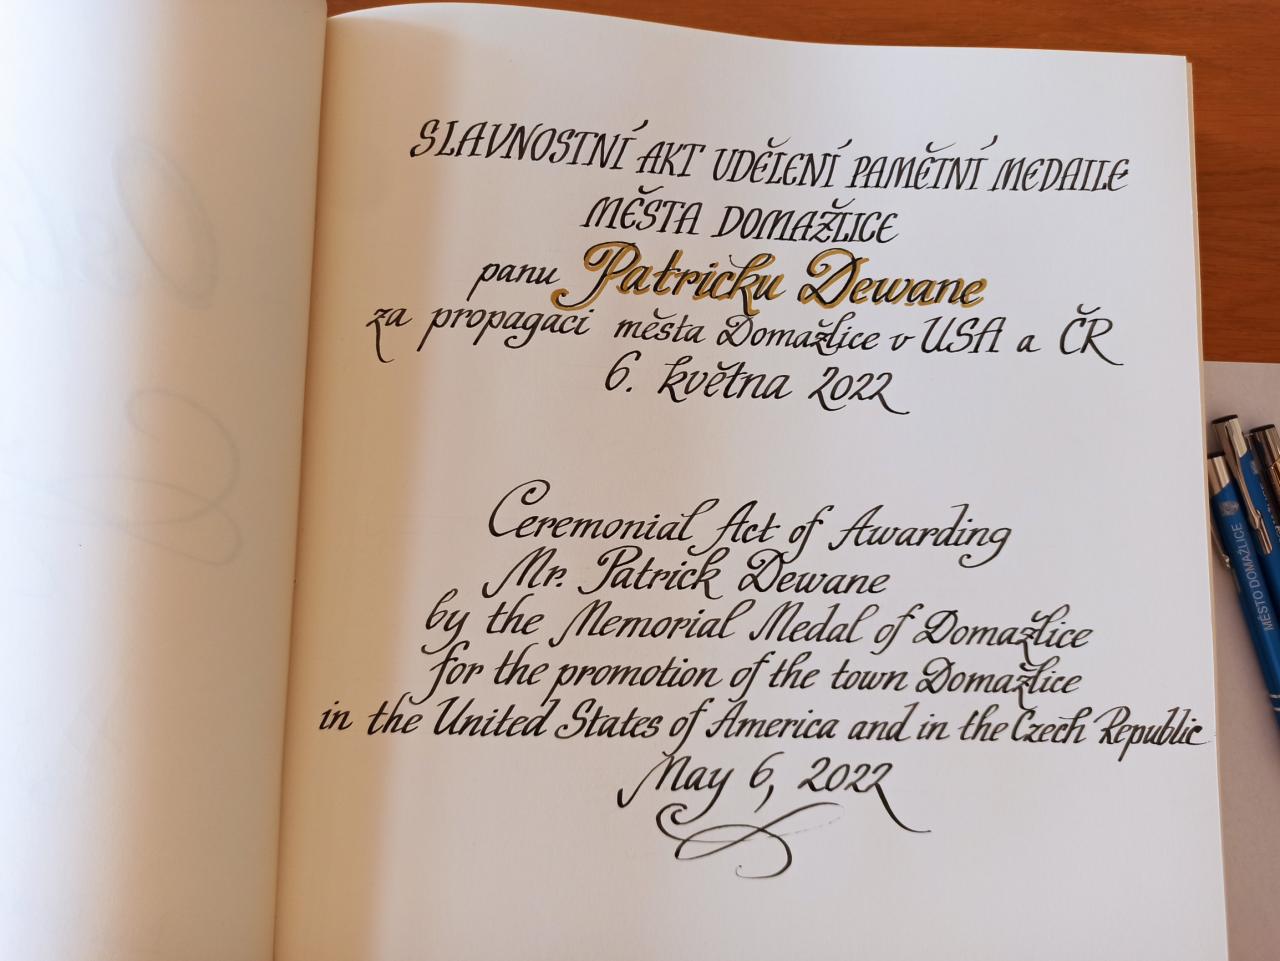 SLAVNOSTNÍ AKT UDĚLENÍ PAMĚTNÍ MEDAILE
MĚSTA DOMAŽLICE
panu Patricku Dewane
za propagaci města Domažlice v USA a ČR
6. května 2022
Ceremonial Act of Awarding
Mr. Patrick Dewane
by the Memorial Medal of Domažlice
for the promotion of the town Domažlice
in the United States of America and in the Czech Republic
May 6, 2022
MĚSTO DOMAŽLICE